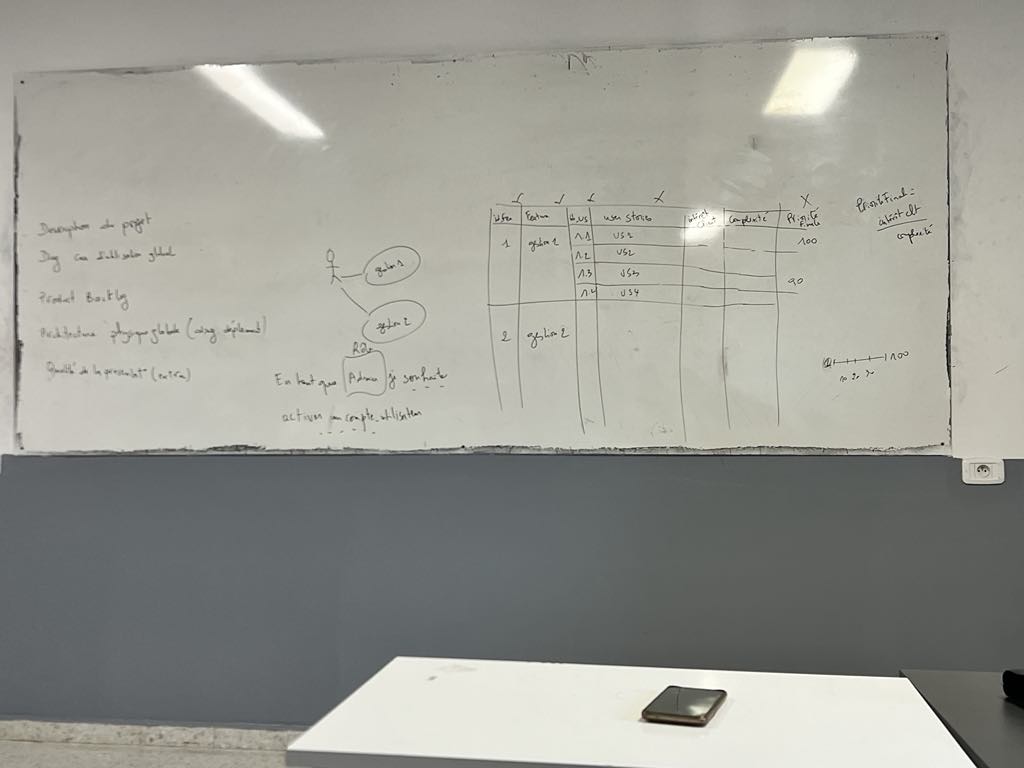 Description du projet
Diag cas d'utilisation global
Product Backlog
Architecture physique globale (diag déploiement)
Qualité de la présentat° (extra)
gestion 1
gestion 2
En tant que Admin je souhaite
activer un compte utilisateur
Id Fea Feature Id_US user stories intérêt client complexité Priorité finale
1 gestion 1 1.1 US1 100
1.2 US2
1.3 US3 90
1.4 US4
2 gestion 2
Priorité Final =
intérêt clt
complexité
100
10 20 30